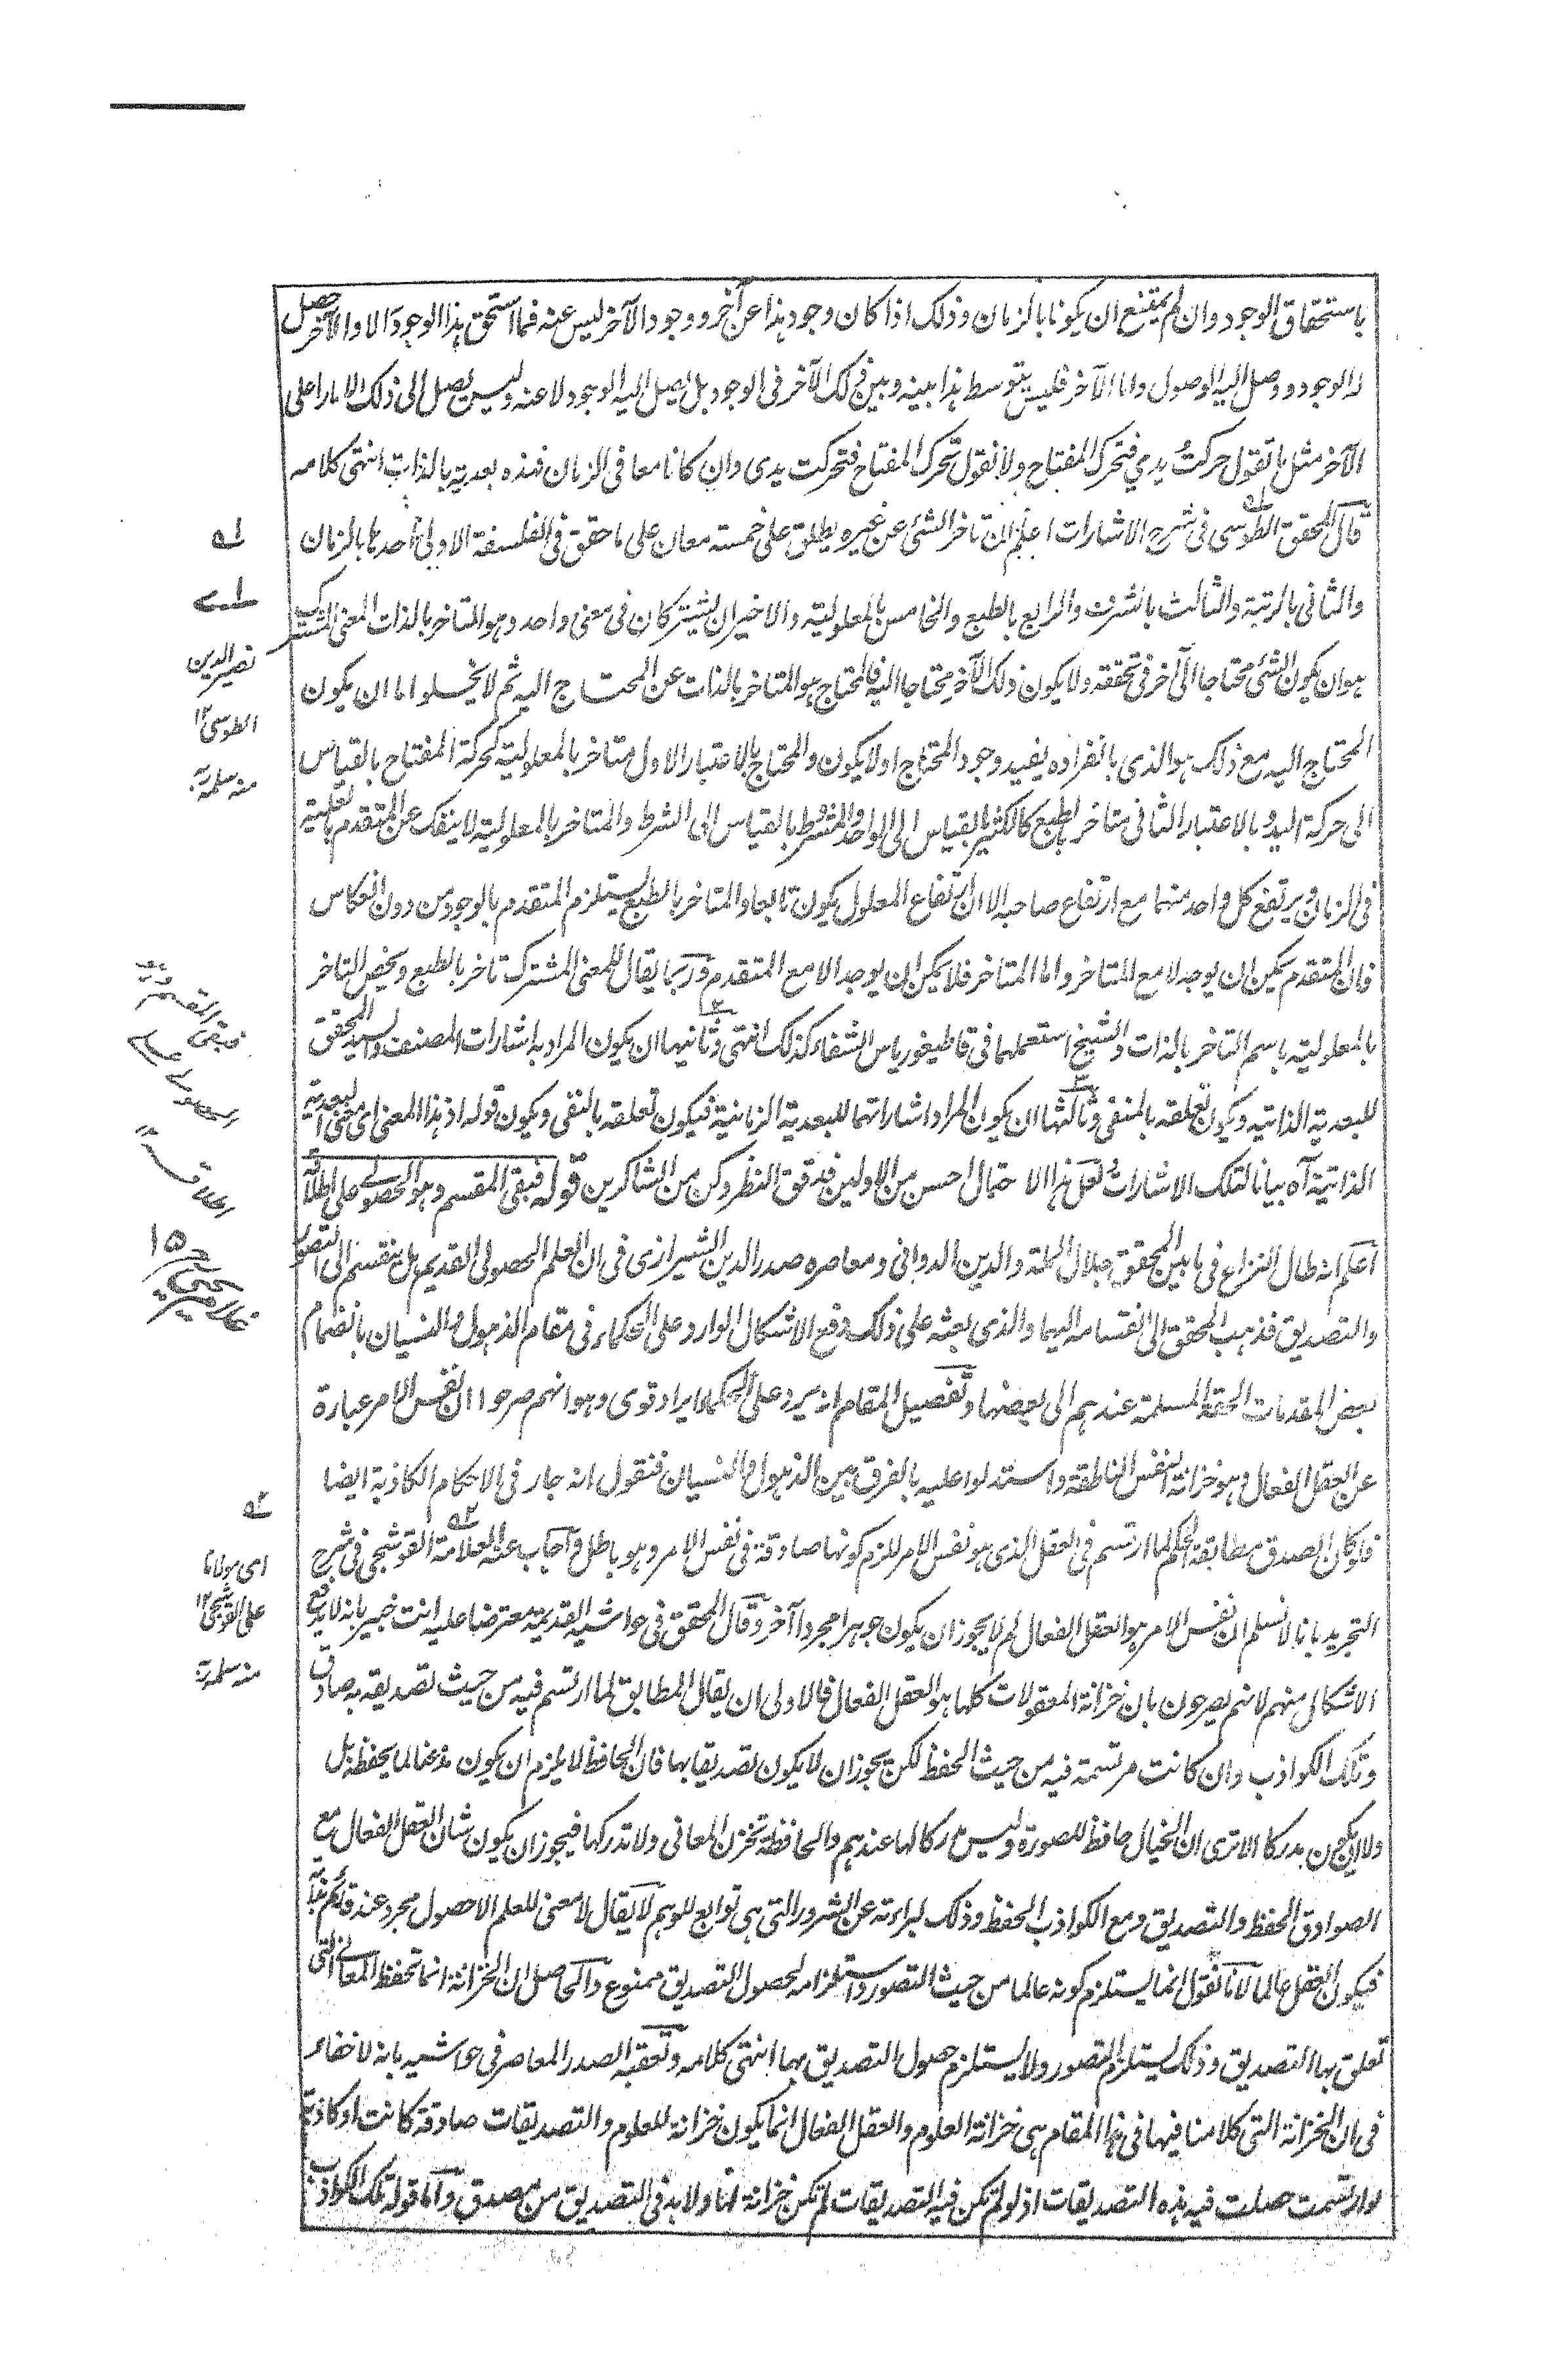 باستحقاق الوجود وان لم يمتنع ان يكونا بالزمان وذلك اذا كان وجود هذا عن آخر ووجود الآخر ليس عنه فما استحق هذا الوجود الا والآخر حصل
له الوجود ووصل اليه الوصول واما الآخر فليس يتوسط هذا بينه وبين ذلك الآخر فى الوجود بل يصل اليه الوجود لا عنه وليس يصل الى ذلك الا مارا على
الآخر مثل ما تقول حركتُ يدى فتحرك المفتاح ولا نقول تحرك المفتاح فتحركت يدى وان كانا معا فى الزمان فهذه بعدية بالذات انتهى كلامه
قال المحقق الطوسى فى شرح الاشارات اعلم ان تاخر الشئ عن غيره يطلق على خمسة معان على ما حقق فى الفلسفة الاولى احدها بالزمان
والثانى بالرتبة والثالث بالشرف والرابع بالطبع والخامس بالمعلولية والاخيران يشتركان فى معنى واحد وهو المتاخر بالذات المعنى المشترك
هو ان يكون الشئ محتاجا الى آخر فى تحققه ولا يكون ذلك الآخر محتاجا اليه فالمحتاج هو المتاخر بالذات عن المحتاج اليه ثم لا يخلوا اما ان يكون
المحتاج اليه مع ذلك هو الذى بانفراده يفيد وجود المحتاج اولا يكون والمحتاج بالاعتبار الاول متاخر بالمعلولية كحركة المفتاح بالقياس
الى حركة اليد وبالاعتبار الثانى متاخر بالطبع كالكثير بالقياس الى الواحد والمشروط بالقياس الى الشرط والمتاخر بالمعلولية لا ينفك عن المتقدم بالعلية
فى الزمان ويرتفع كل واحد منهما مع ارتفاع صاحبه الا ان ارتفاع المعلول يكون تابعا والمتاخر بالطبع يستلزم المتقدم بالوجود من دون انعكاس
فان المتقدم يمكن ان يوجد لا مع المتاخر واما المتاخر فلا يمكن ان يوجد الا مع المتقدم وربما يقال للمعنى المشترك تاخر بالطبع ويخص التاخر
بالمعلولية باسم التاخر بالذات والشيخ استعملهما فى قاطيغورياس الشفاء كذلك انتهى وثانيها ان يكون المراد به اشارات المصنف والسيد المحقق
للبعدية الذاتية ويكون تعلقه بالمنفى وثالثها ان يكون المراد اشاراتهما للبعدية الزمانية فيكون تعلقه بالنفى ويكون قوله اذ هذا المعنى اى معنى البعدية
الذاتية آه بيانا لتلك الاشارات ولعل هذا الاحتمال احسن من الاولين فدقق النظر وكن من الشاكرين قوله فبقى المقسم وهو الحصولى على اطلاقه
اعلم انه طال النزاع فى ما بين المحقق جلال الملة والدين الدوانى ومعاصره صدر الدين الشيرازى فى ان العلم الحصولى القديم هل ينقسم الى التصور
والتصديق فذهب المحقق الى انقسامه اليهما والذى بعثه على ذلك دفع الاشكال الوارد على الحكماء فى مقام الذهول والنسيان بانضمام
بعض المقدمات الحقة المسلمة عندهم الى بعضها وتفصيل المقام انه يرد على الحكماء ايراد قوى وهو انهم صرحوا ان نفس الامر عبارة
عن العقل الفعال وهو خزانة النفس الناطقة واستدلوا عليه بالفرق بين الذهول والنسيان فنقول انه جار فى الاحكام الكاذبة ايضا
فلو كان الصدق مطابقة الحكم لما ارتسم فى العقل الذى هو نفس الامر للزم كونها صادقة فى نفس الامر وهو باطل واجاب عنه العلامة القوشجى فى شرح
التجريد بانا لا نسلم ان نفس الامر هو العقل الفعال لم لا يجوز ان يكون جوهرا مجردا آخر وقال المحقق فى حواشيه القديمة معترضا عليه انت خبير بانه لا يدفع
الاشكال منهم لانهم يصرحون بان خزانة المعقولات كلها هو العقل الفعال فالاولى ان يقال المطابق لما ارتسم فيه من حيث تصديقه به صادق
وتلك الكواذب وان كانت مرتسمة فيه من حيث الحفظ لكن يجوز ان لا يكون تصديقا بها فان الحافظ لا يلزم ان يكون مذعنا لما يحفظه بل
ولا ان يكون مدركا الا ترى ان الخيال حافظ للصورة وليس مدركا لها عندهم والحافظة تخزن المعانى ولا تدركها فيجوز ان يكون شان العقل الفعال مع
الصوادق الحفظ والتصديق ومع الكواذب الحفظ وذلك لبراءته عن الشرور التى هى توابع للوهم لا يقال لا معنى للعلم الا حصول مجرد عند قائم بذاته
فيكون العقل عالما لانا نقول انما يستلزم كونه عالما من حيث التصور واستلزامه لحصول التصديق ممنوع والحاصل ان الخزانة انما تحفظ المعانى التى
تعلق بها التصديق وذلك يستلزم التصور ولا يستلزم حصول التصديق بها انتهى كلامه وتعقبه الصدر المعاصر فى حواشيه بانه لا خفاء
فى ان الخزانة التى كلامنا فيها فى هذا المقام هى خزانة العلوم والعقل الفعال انما يكون خزانة للعلوم والتصديقات صادقة كانت او كاذبة
لو ارتسمت حصلت فيه هذه التصديقات اذ لو لم تكن فيه التصديقات لم تكن خزانة لها ولا بد فى التصديق من مصدق واما قوله تلك الكواذب
له
نصير الدين
الطوسى ١٢
منه سلمه
فبقى المقسم وهو
الحصولى على
اطلاقه ١٢
غلام يحيى
ص ١٥
له
اى مولانا
على القوشجى ١٢
منه سلمه